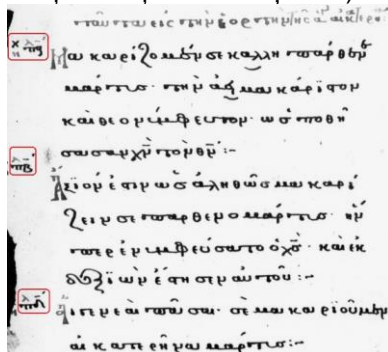 Μακαρίζομέν σε καλλη παρθεν
μάρτυς· τὴν μακάριστον
καὶ θεονύμφευτον· ὡς ποθή
σασαν χν τὸν θν:-
Ἄξιόν ἐστιν ὡς ἀληθῶς μακαρί
ζειν σε παρθενομάρτυς· ἣν
περ ἐνυμφεύσατο ὁ χς· καὶ ἐκ
δεξιῶν ἔστησεν αὐτοῦ:-
πᾶσαι· σὲ μακαριοῦμεν
αἰκατερῖνα μάρτυς:-